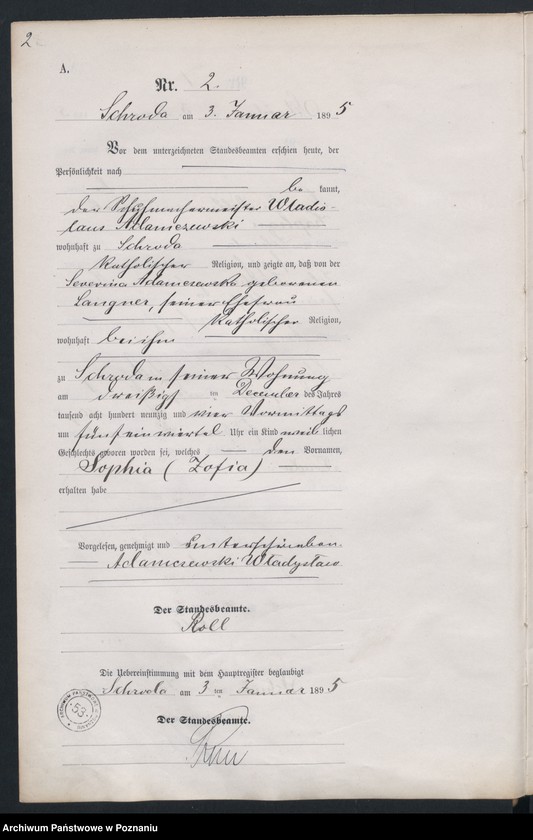 2
A.
Nr. 2.
Schroda am 3. Januar 1895
Vor dem unterzeichneten Standesbeamten erschien heute, der
Persönlichkeit nach
be kannt,
der Schuhmachermeister Wladis-
laus Adamczewski
wohnhaft zu Schroda
katholischer Religion, und zeigte an, daß von der
Severina Adamczewska geborenen
Langner, seiner Ehefrau
katholischer Religion,
wohnhaft bei ihm
zu Schroda in seiner Wohnung
am dreißigst en December des Jahres
tausend acht hundert neunzig und vier Vormittags
um fünf einviertel Uhr ein Kind weib lichen
Geschlechts geboren worden sei, welches den Vornamen,
Sophia (Zofia)
erhalten habe
Vorgelesen, genehmigt und unterschrieben.
Adamczewski Władysław
Der Standesbeamte.
Roll
Die Uebereinstimmung mit dem Hauptregister beglaubigt
Schroda am 3 ten Januar 1895
Der Standesbeamte.
53
Archiwum Państwowe w Poznaniu